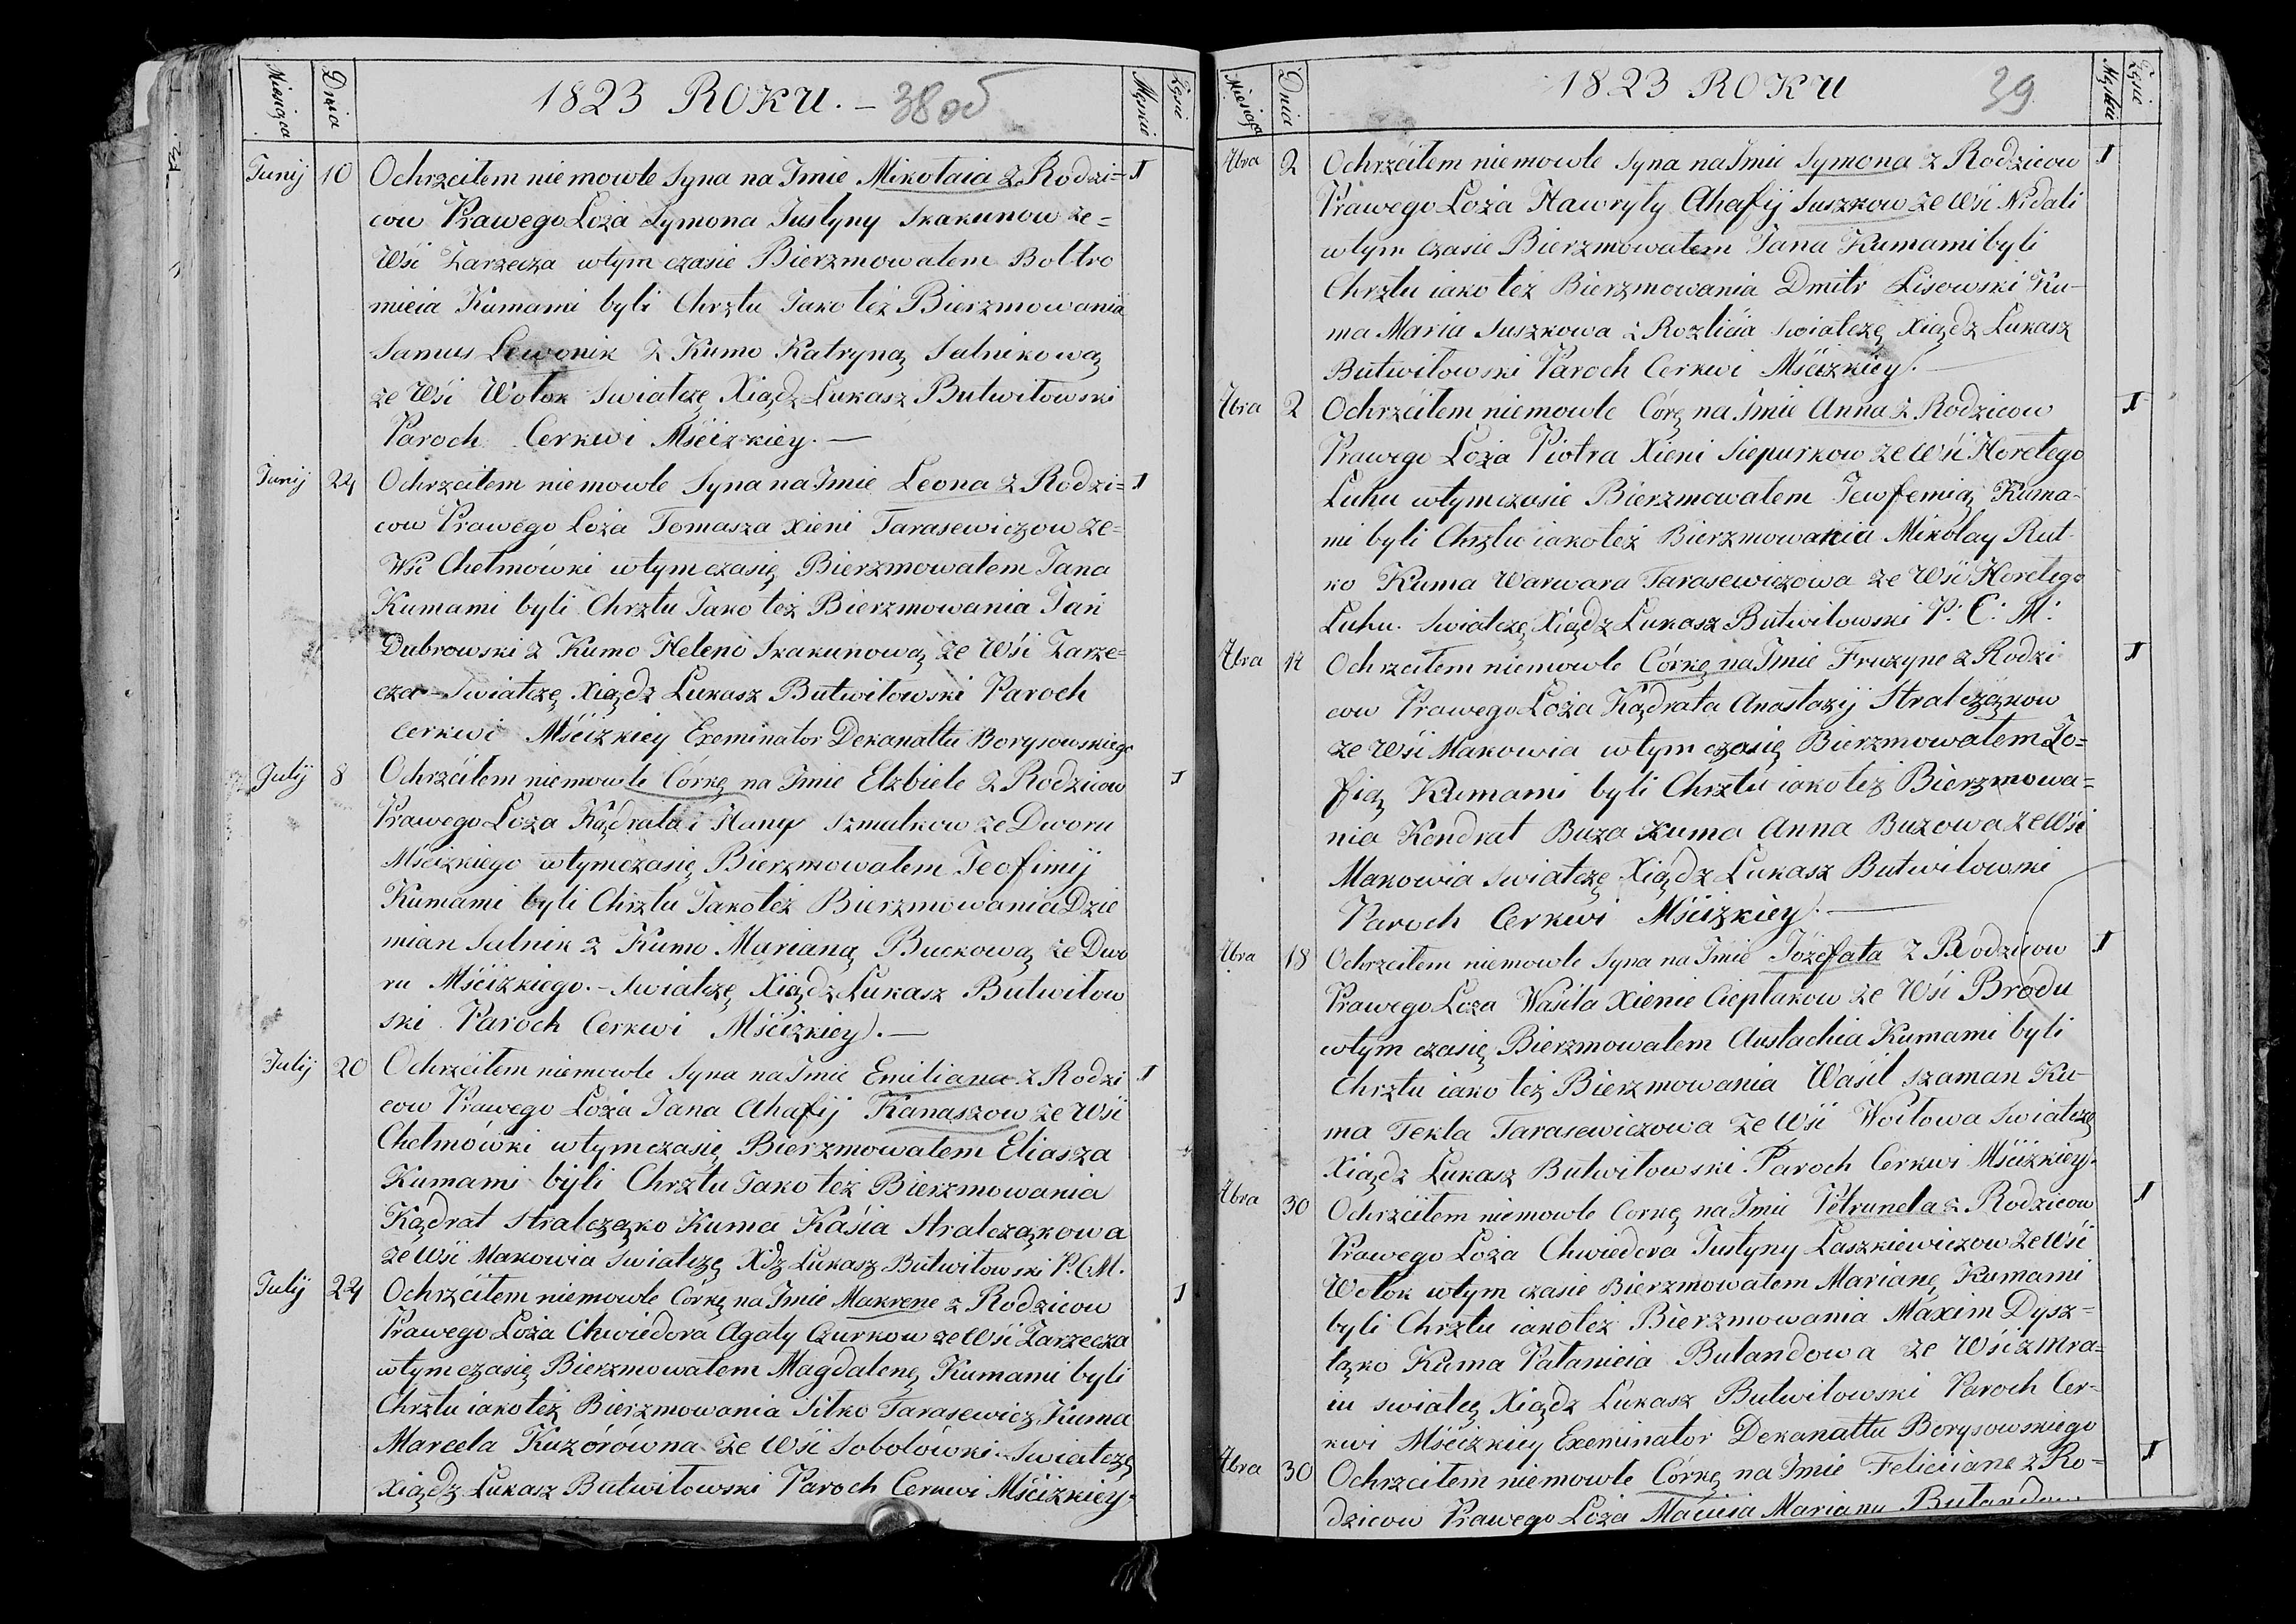 Miesiąca Dnia 1823 ROKU. – 38 об Męskie Żęśie
Junij 10 Ochrzcilem niemowle Syna na Jmie Mikołaia z Rodzi= I
cow Prawego Loża Symona Justyny Skakunow ze=
Wśi Zarzecza wtym czasie Bierzmowałem Bołtro
mieia Kumami byli Chrztu Jako też Bierzmowania
Samus Lewonik z Kumo Katryną Salnikową
ze Wśi Wołok Swiatczę Xiądz Łukasz Butwiłowski
Paroch Cerkwi Mśćizkiey. —
Junij 24 Ochrzcilem niemowle Syna na Jmie Leona z Rodzi= I
cow Prawego Loża Tomasza Xieni Tarasewiczow ze=
Wśi Chełmówki wtym czasię Bierzmowałem Jana
Kumami byli Chrztu Jako też Bierzmowania Jan
Dubrowski z Kumo Heleno Skakunową ze Wśi Zarze=
cza – Swiatczę Xiądz Łukasz Butwiłowski Paroch
Cerkwi Mśćizkiey Exeminator Dekanattu Borysowskiego
Julij 8 Ochrzćiłem niemowle Córkę na Jmie Elzbiete z Rodzicow I
Prawego Loża Kądrata i Hany Szmatkow ze Dworu
Mśćizkiego wtymczasię Bierzmowałem Teofimij
Kumami byli Chrztu Jako też Bierzmowania Dzie
mian Salnik z Kumo Marianą Buckową ze Dwo
ru Mśćizkiego. – Swiatczę Xiądz Łukasz Butwiłow
ski Paroch Cerkwi Mśćizkiey. —
Julij 20 Ochrzćiłem niemowle Syna na Jmie Emiliana z Rodzi I
cow Prawego Loża Jana Ahafij Kanaszow ze Wśi
Chełmówki wtymczasię Bierzmowałem Eliasza
Kumami byli Chrztu Jako też Bierzmowania
Kądrat Stralczązko Kuma Kaśia Stralczązkowa
ze Wśi Makowia Swiatczę Xdz Łukasz Butwiłowski P.C.M.
Julij 24 Ochrzćiłem niemowle Córkę na Jmie Makrene z Rodzicow I
Prawego Loża Chwiedora Agaty Czurkow ze Wśi Zarzecza
wtymczasię Bierzmowałem Magdalenę Kumami byli
Chrztu iako też Bierzmowania Sitko Tarasewicz, Kuma
Marcela Kuzórówna ze Wśi Sobolówki. Swiatczę
Xiądz Łukasz Butwiłowski Paroch Cerkwi Mśćizkiey.
Miesiąca Dnia 1823 ROKU 39. Męskie Żęśie
7bra 2 Ochrzćiłem niemowle Syna na Jmie Symona z Rodzicow I
Prawego Loża Hawryły Ahafij Suszkow ze Wśi Nidali
wtym czasie Bierzmowałem Jana Kumami byli
Chrztu iako też Bierzmowania Dmitr Lisowski Ku-
ma Maria Suszkowa z Rozlicia Swiatczę Xiądz Łukasz
Butwiłowski Paroch Cerkwi Mśćizkiey. —
7bra 2 Ochrzćiłem niemowle Córę na Jmie Anna z Rodzicow I
Prawego Loża Piotra Xieni Siepurkow ze Wśi Horełego
Luhu wtymczasie Bierzmowałem Jewfemią Kuma-
mi byli Chrztu iako też Bierzmowania Mikołay Rut-
ko Kuma Warwara Tarasewiczowa ze Wśi Horełego
Luhu. Swiatczę Xiądz Łukasz Butwiłowski P. C. M.
7bra 14 Ochrzciłem niemowle Córkę na Jmie Fruzyne z Rodzi I
cow Prawego Loża Kądrata Anastazij Stralczązkow
ze Wśi Makowia wtym czasię Bierzmowałem Zo=
fią Kumami byli Chrztu iako też Bierzmowa=
nia Kondrat Buza Kuma Anna Buzowa ze Wśi
Makowia Swiatczę Xiądz Łukasz Butwiłowski
Paroch Cerkwi Mśćizkiey. —
7bra 18 Ochrzciłem niemowle Syna na Jmie Józefata z Rodzicow I
Prawego Loża Wasila Xienie Cieplakow ze Wśi Brodu
wtym czasię Bierzmowałem Austachia Kumami byli
Chrztu iako też Bierzmowania Waśil Szaman Ku-
ma Tekla Tarasewiczowa ze Wśi Woiłowa Swiatczę
Xiądz Łukasz Butwiłowski Paroch Cerkwi Mśćizkiey.
7bra 30 Ochrzćiłem niemowle Corkę na Jmie Petrunela z Rodzicow I
Prawego Loża Chwiedora Justyny Laszkiewiczow ze Wśi
Wołok wtym czasie Bierzmowałem Marianę Kumami
byli Chrztu iako też Bierzmowania Maxim Dysz=
lązko Kuma Pałanieia Bulandowa ze Wśi Zmra=
iu Swiatcę Xiądz Łukasz Butwiłowski Paroch Cer=
kwi Mśćizkiey Exeminator Dekanattu Borysowskiego
7bra 30 Ochrzciłem niemowle Córkę na Jmie Feliciiane z Ro= I
dzicow Prawego Loża Macieia Marianu